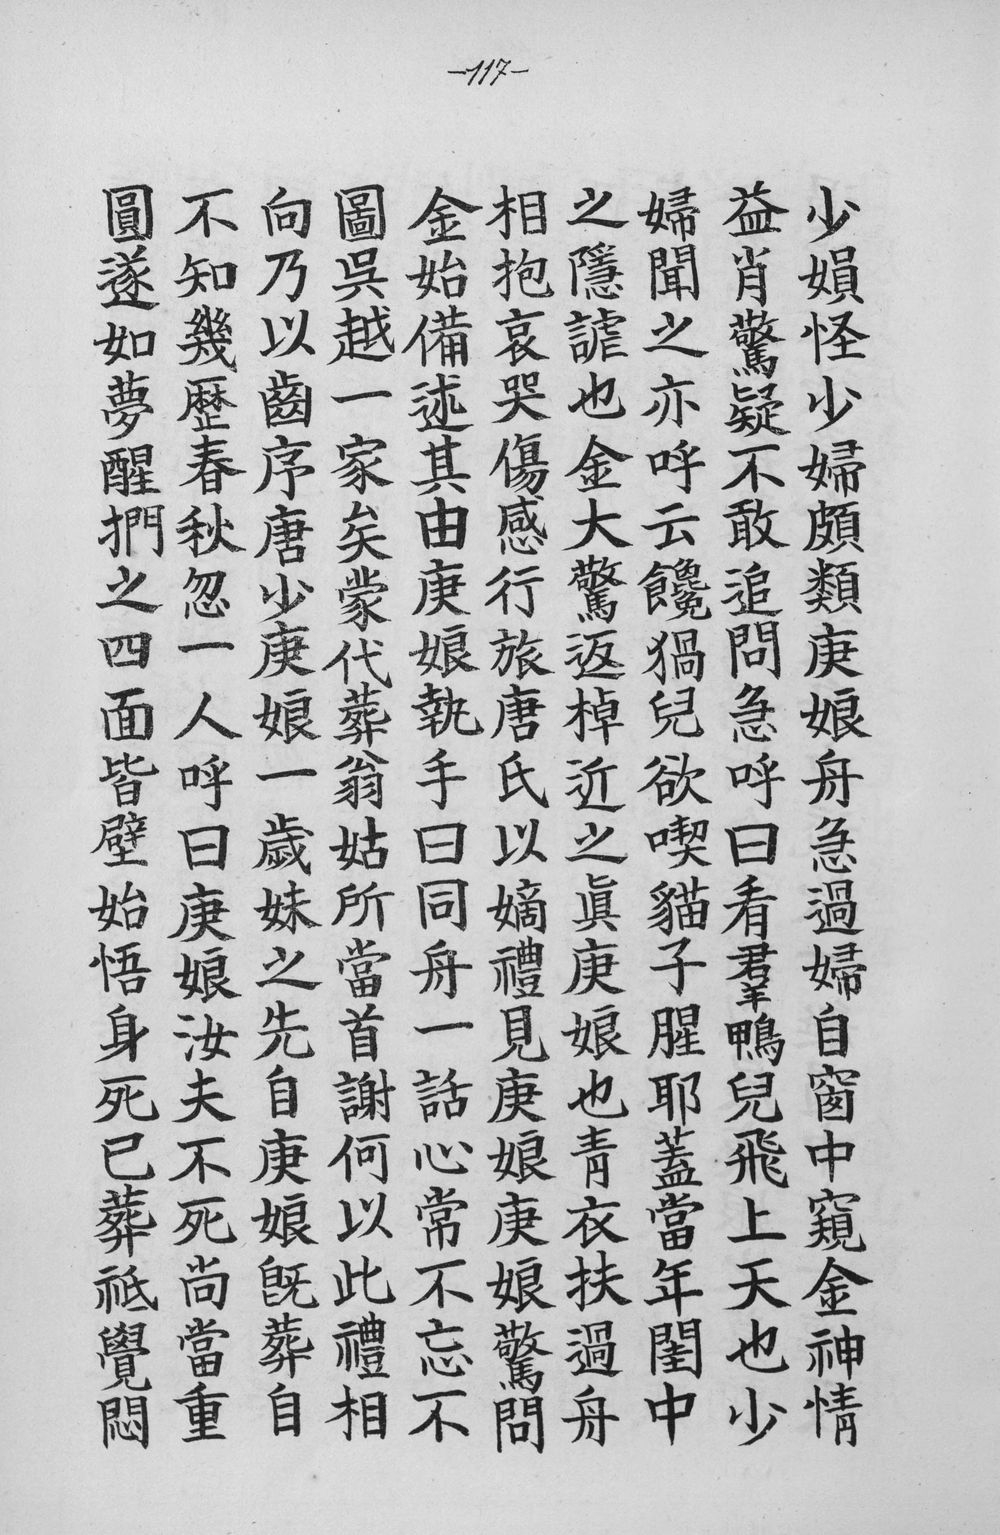 -117-
少娟怪少婦頗類庚娘舟急過婦自窗中窺金神情
益肖驚疑不敢追問急呼曰看羣鴨兒飛上天也少
婦聞之亦呼云饞猧兒欲喫貓子腥耶蓋當年閨中
之隱謔也金大驚返棹近之眞庚娘也青衣扶過舟
相抱哀哭傷感行旅唐氏以嫡禮見庚娘庚娘驚問
金始備述其由庚娘執手曰同舟一話心常不忘不
圖吳越一家矣蒙代葬翁姑所當首謝何以此禮相
向乃以齒序唐少庚娘一歲妹之先自庚娘旣葬自
不知幾歷春秋忽一人呼曰庚娘汝夫不死尚當重
圓遂如夢醒捫之四面皆壁始悟身死已葬祗覺悶